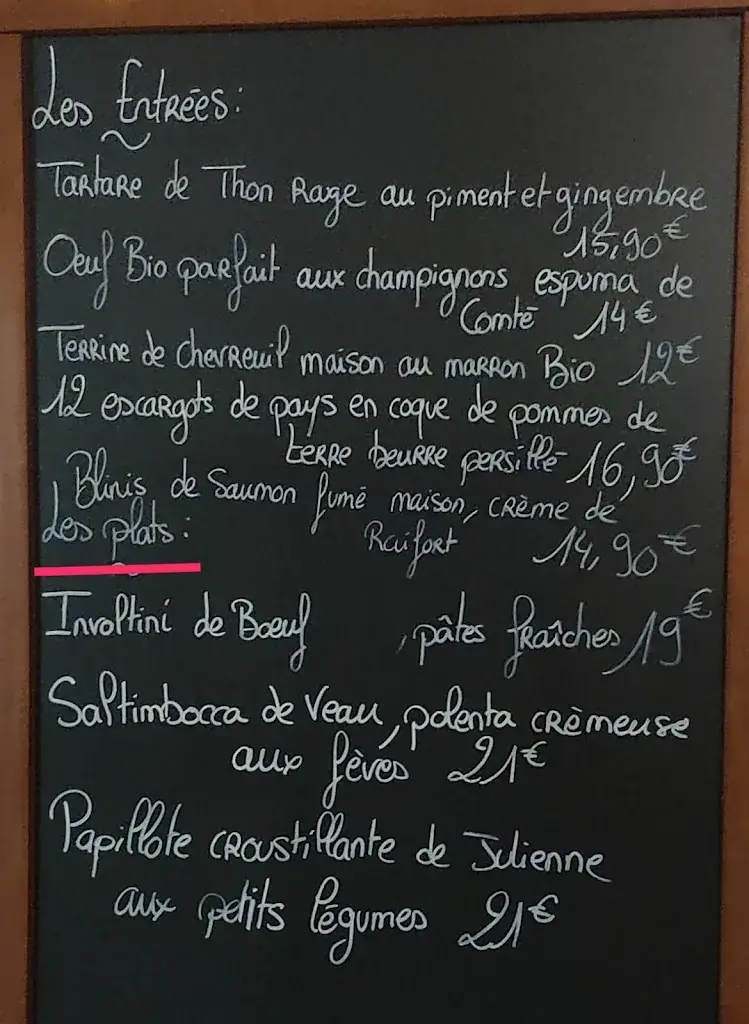 Les Entrées:
Tartare de Thon Rage au piment et gingembre
15,90€
Oeuf Bio parfait aux champignons espuma de
Comté 14€
Terrine de chevreuil maison au marron Bio 12€
12 escargots de pays en coque de pommes de
terre beurre persillé 16,90€
Blinis de Saumon fumé maison, crème de
Raifort 14,90€
Les plats:
Involtini de Boeuf , pâtes fraîches 19€
Saltimbocca de Veau, polenta crèmeuse
aux fèves 21€
Papillote croustillante de Julienne
aux petits légumes 21€